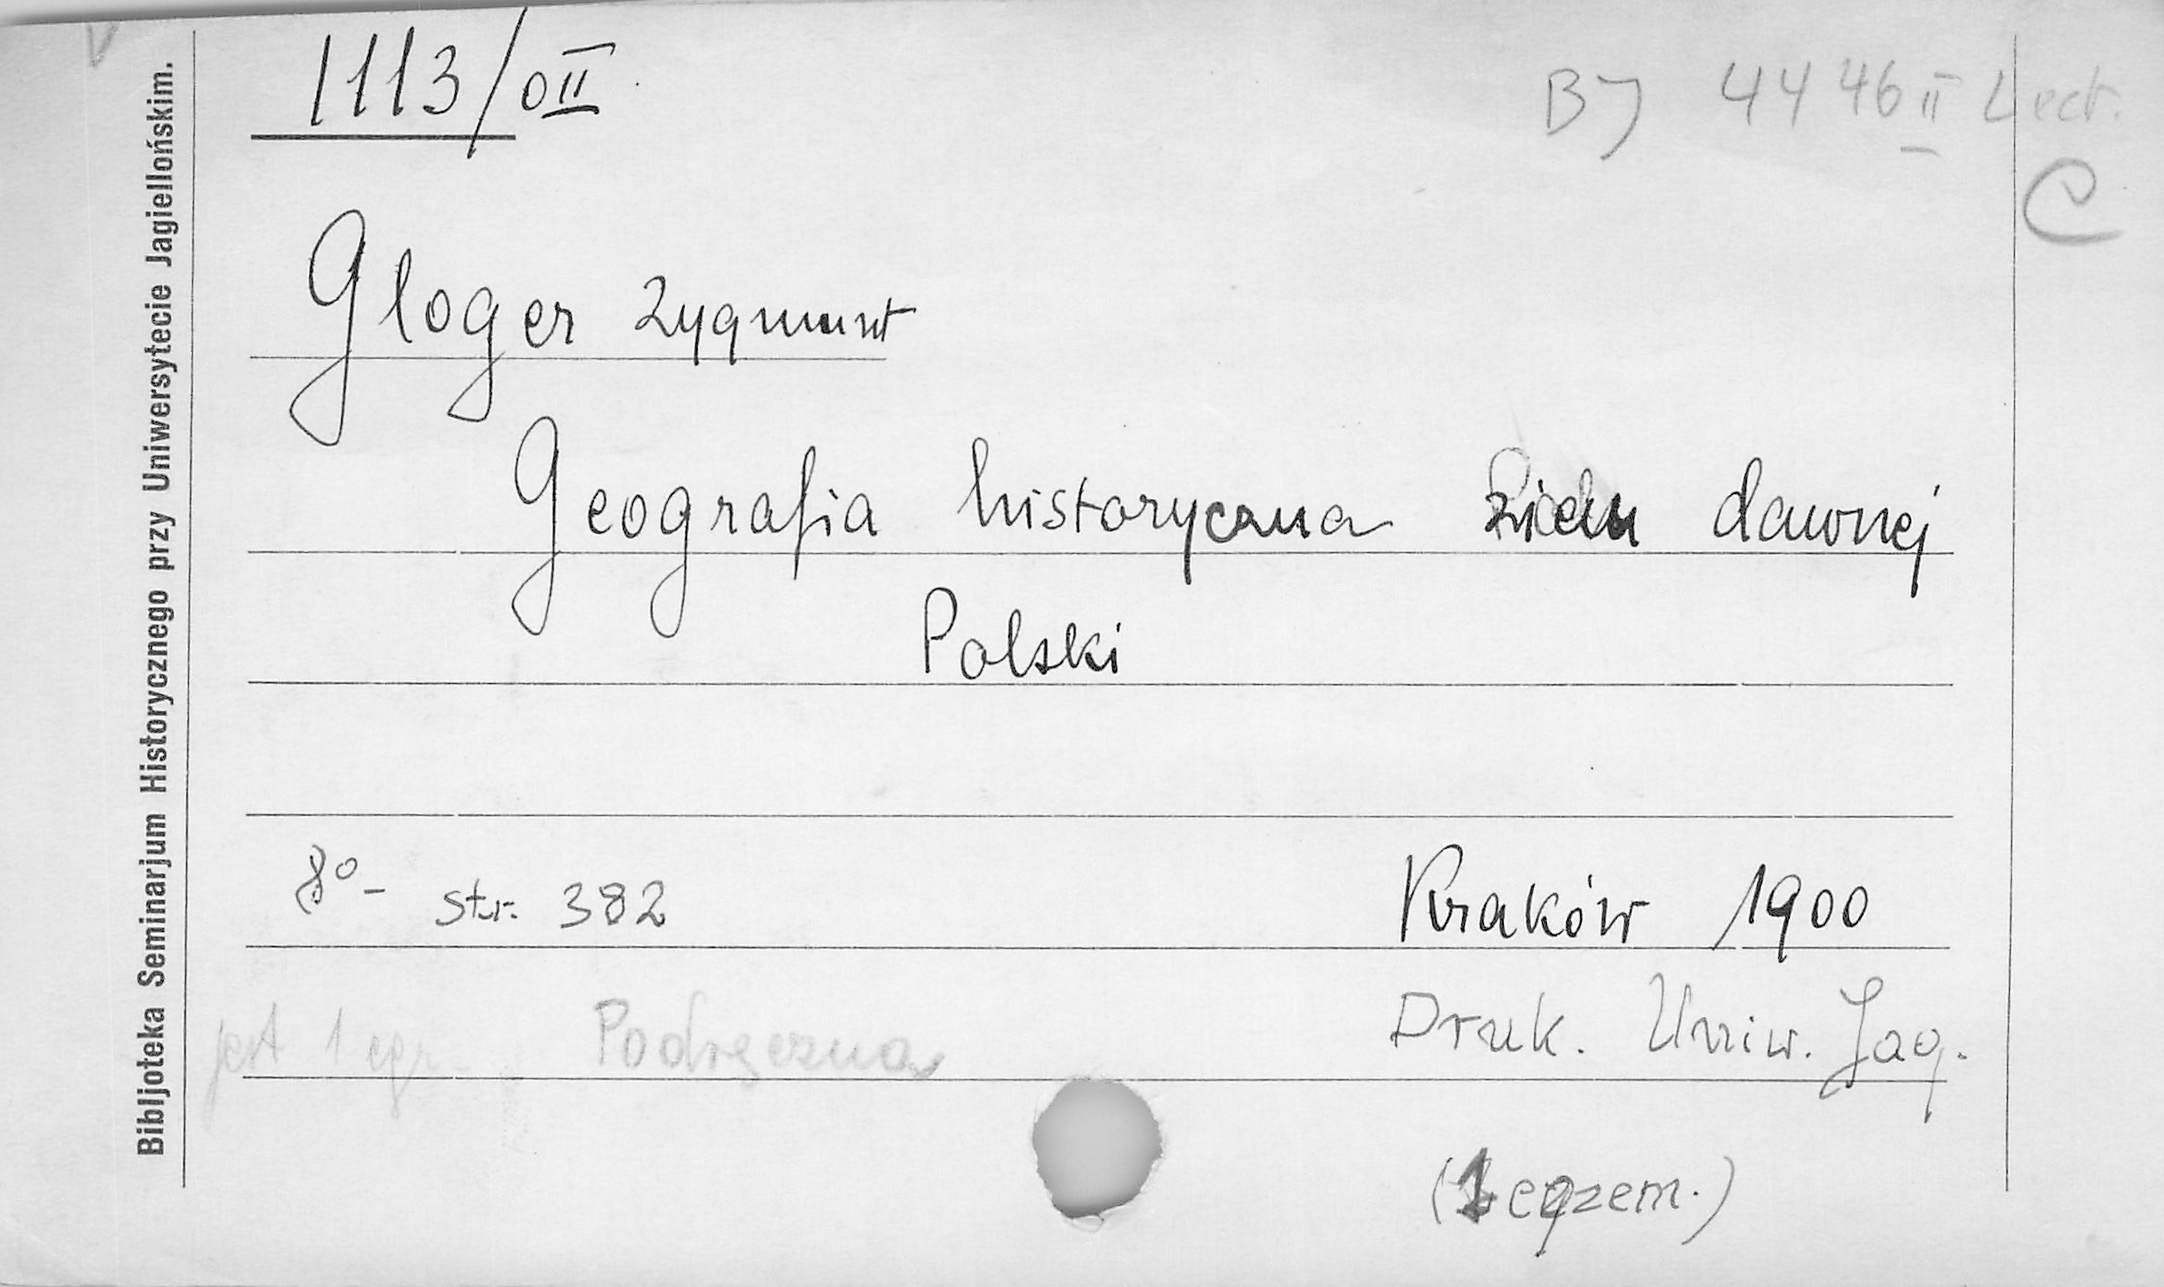 1113/0II
BJ 4446 II Lect.
C
Gloger Zygmunt
Geografia historyczna ziem dawnej
Polski
8° - str. 382
Kraków 1900
jest 1 egz. Podręczna
Druk. Uniw. Jag.
(1 egzem.)
Bibljoteka Seminarjum Historycznego przy Uniwersytecie Jagiellońskim.